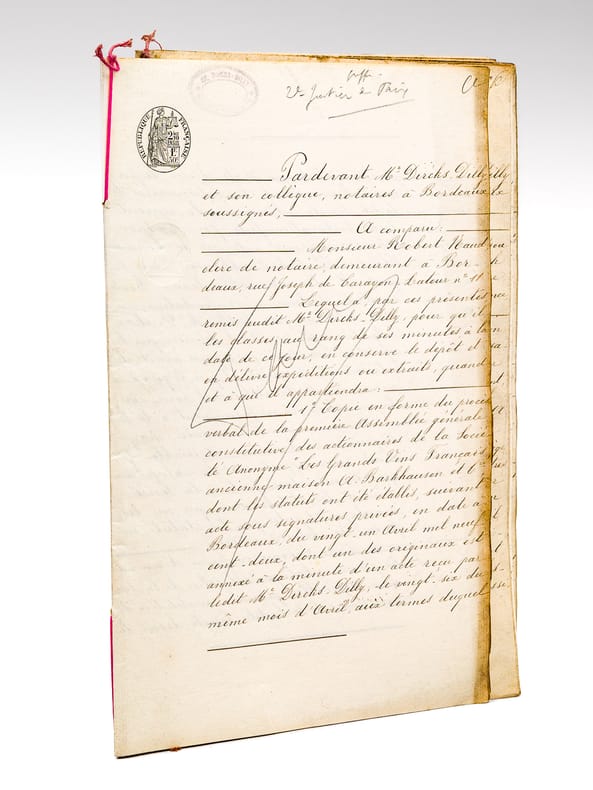 2e Justice de Paix
RÉPUBLIQUE FRANÇAISE
Pardevant Me Dircks-Dilly
et son collègue, notaires à Bordeaux
soussignés,
A comparu:
Monsieur Robert
clerc de notaire, demeurant à Bor-
deaux, rue Joseph de Carayon Latour no
Lequel a, par ces présentes,
remis audit Me Dircks-Dilly, pour qu'il
les classes au rang de ses minutes à la
date de ce jour, en conserve le dépôt et
en délivre expéditions ou extraits, quand
et à qui il appartiendra:
1o Copie en forme du procès
verbal de la première Assemblée générale
constitutive des actionnaires de la Socié
té Anonyme "Les Grands Vins Français
ancienne maison A. Barkhausen et Cie
dont les statuts ont été établis, suivant
acte sous signatures privées, en date à
Bordeaux, du vingt-un Avril mil neuf
cent-deux, dont un des originaux est
annexé à la minute d'un acte reçu par
ledit Me Dircks-Dilly, le vingt-six du
même mois d'Avril, aux termes duquel